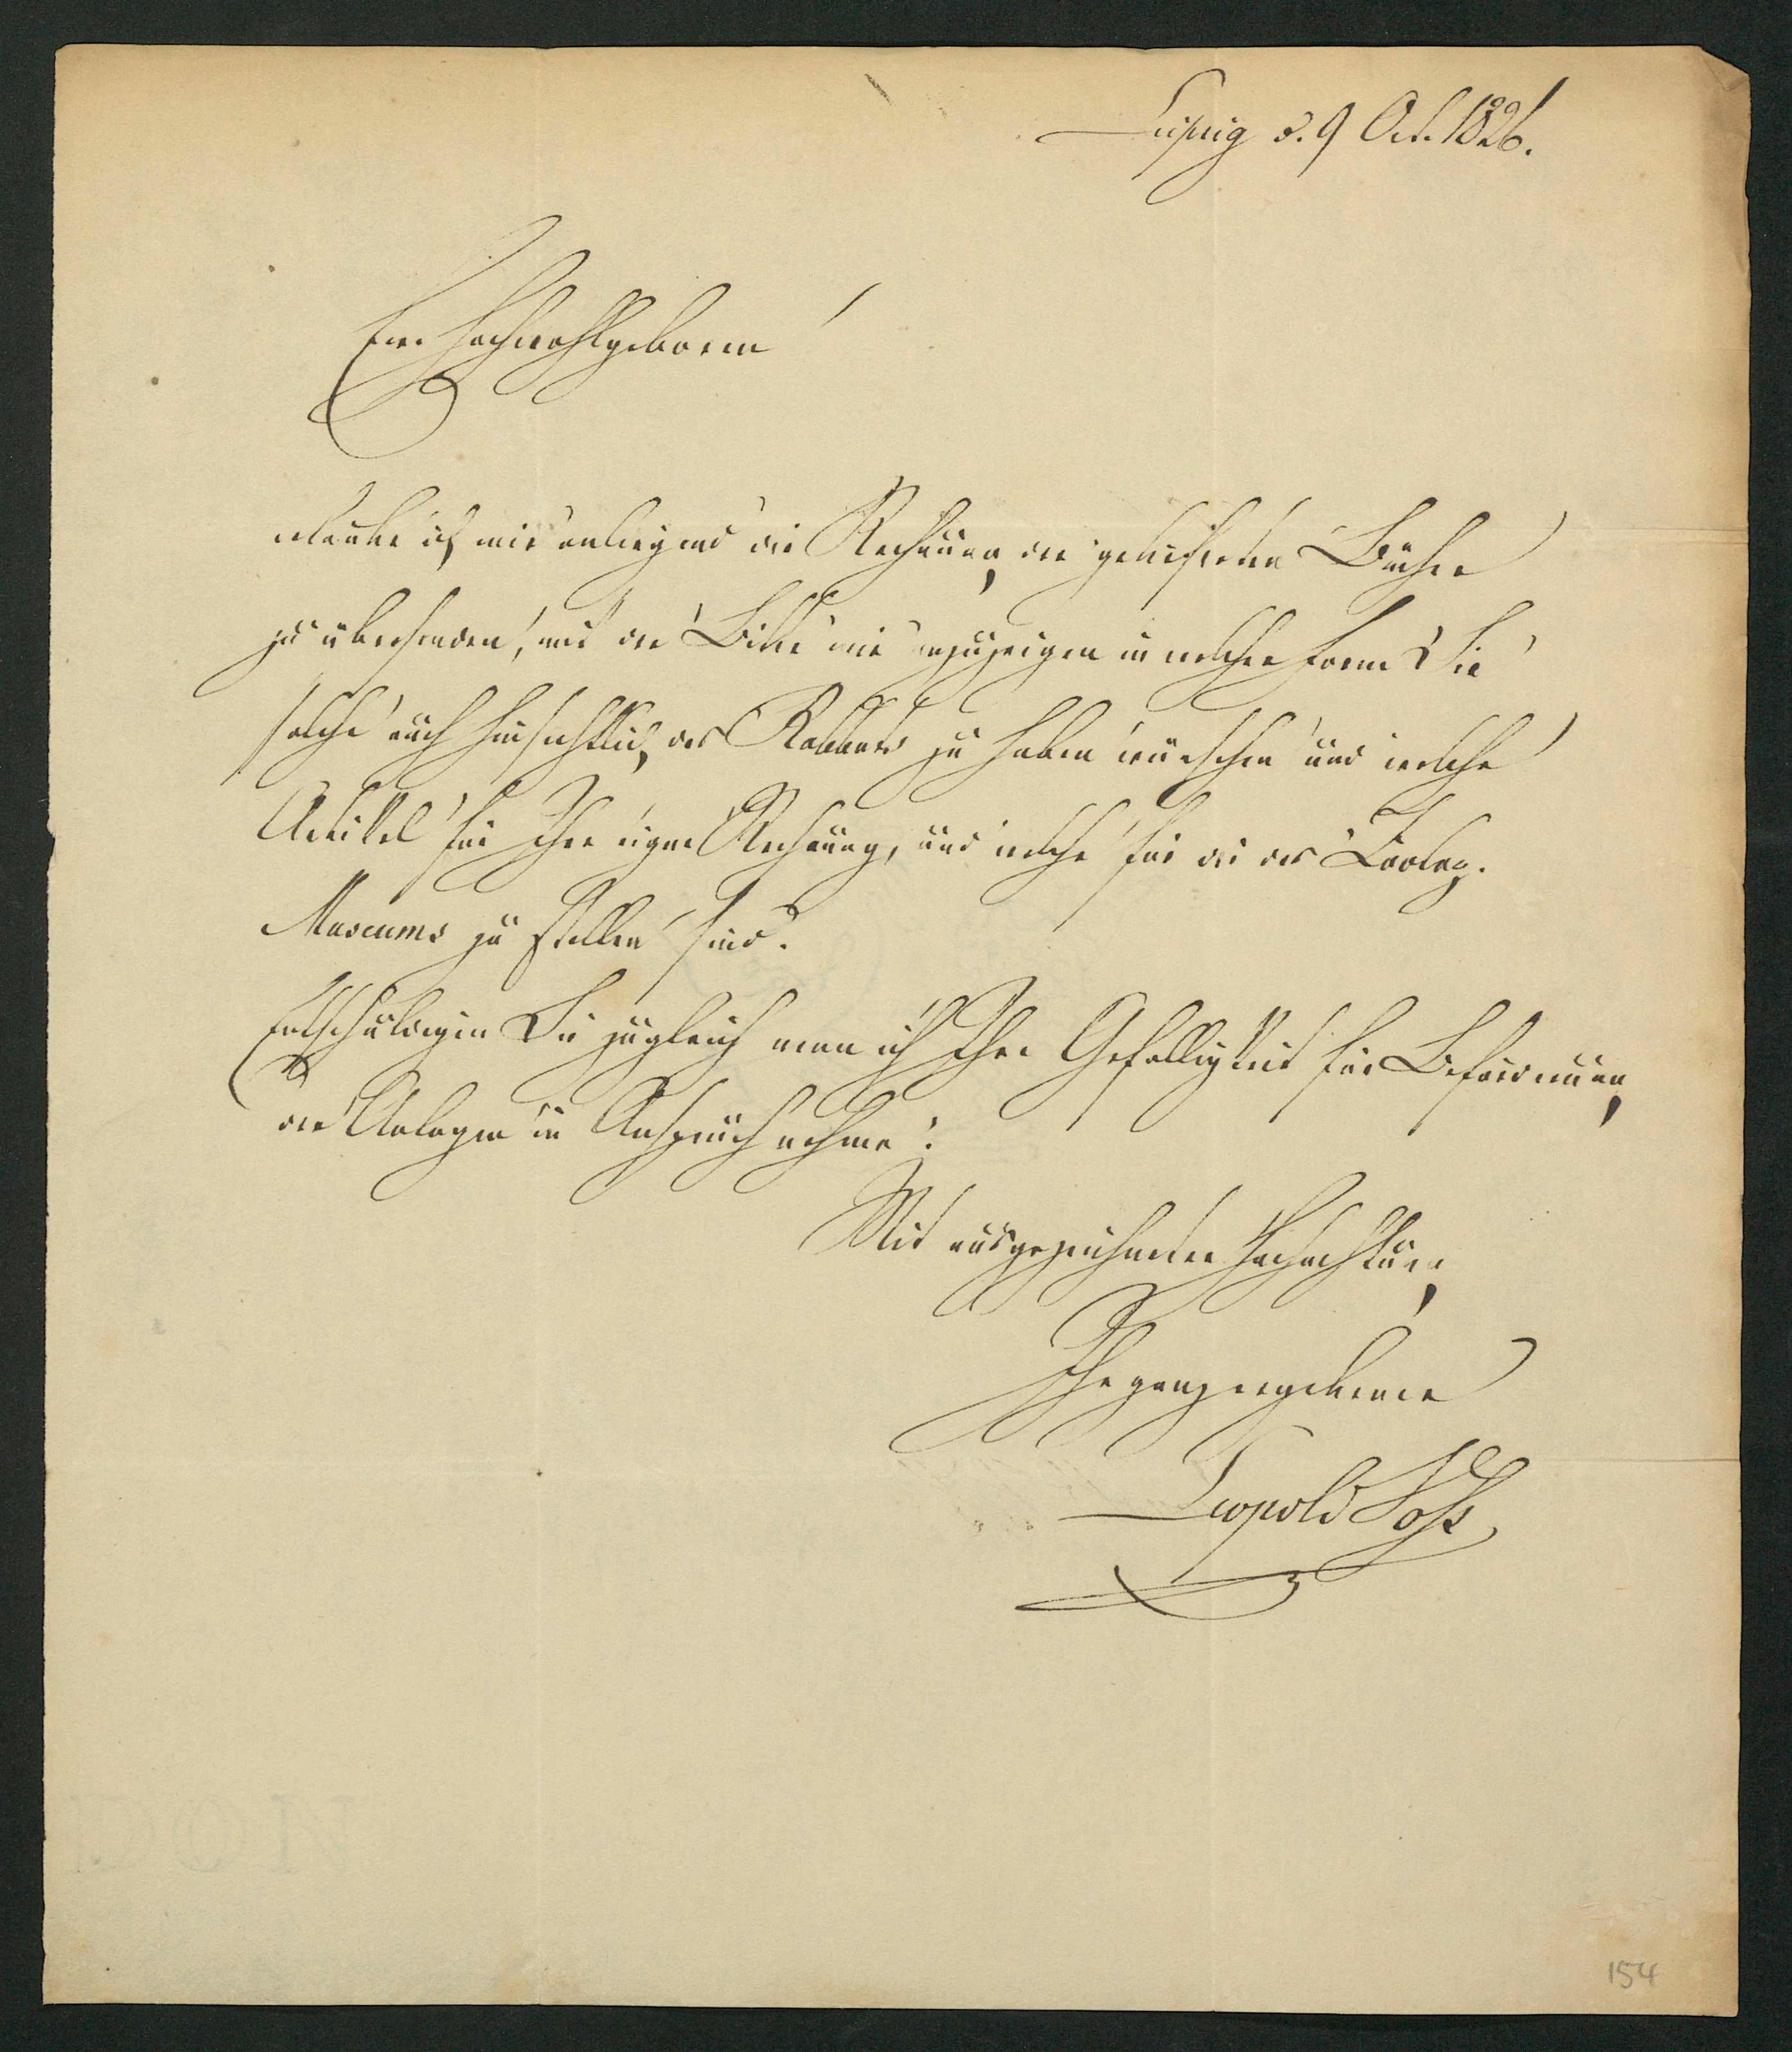 Leipzig d. 9 Oct. 1826.
Ew. Hochwohlgeboren
erlaube ich mir anliegend die Rechnung der gelieferten Bücher
zu übersenden, mit der Bitte mir anzuzeigen in welcher Form Sie
solche auch hinsichtlich des Rabbats zu haben wünschen und welche
Artikel für Ihre eigne Rechnung, und welche für die des Zoolog.
Museums zu stellen sind.
Entschuldigen Sie zugleich wenn ich Ihre Gefälligkeit für Beförderung
der Anlagen in Anspruch nehme.
Mit ausgezeichneter Hochachtung
Ihr ganz ergebener
Leopold Voß
154